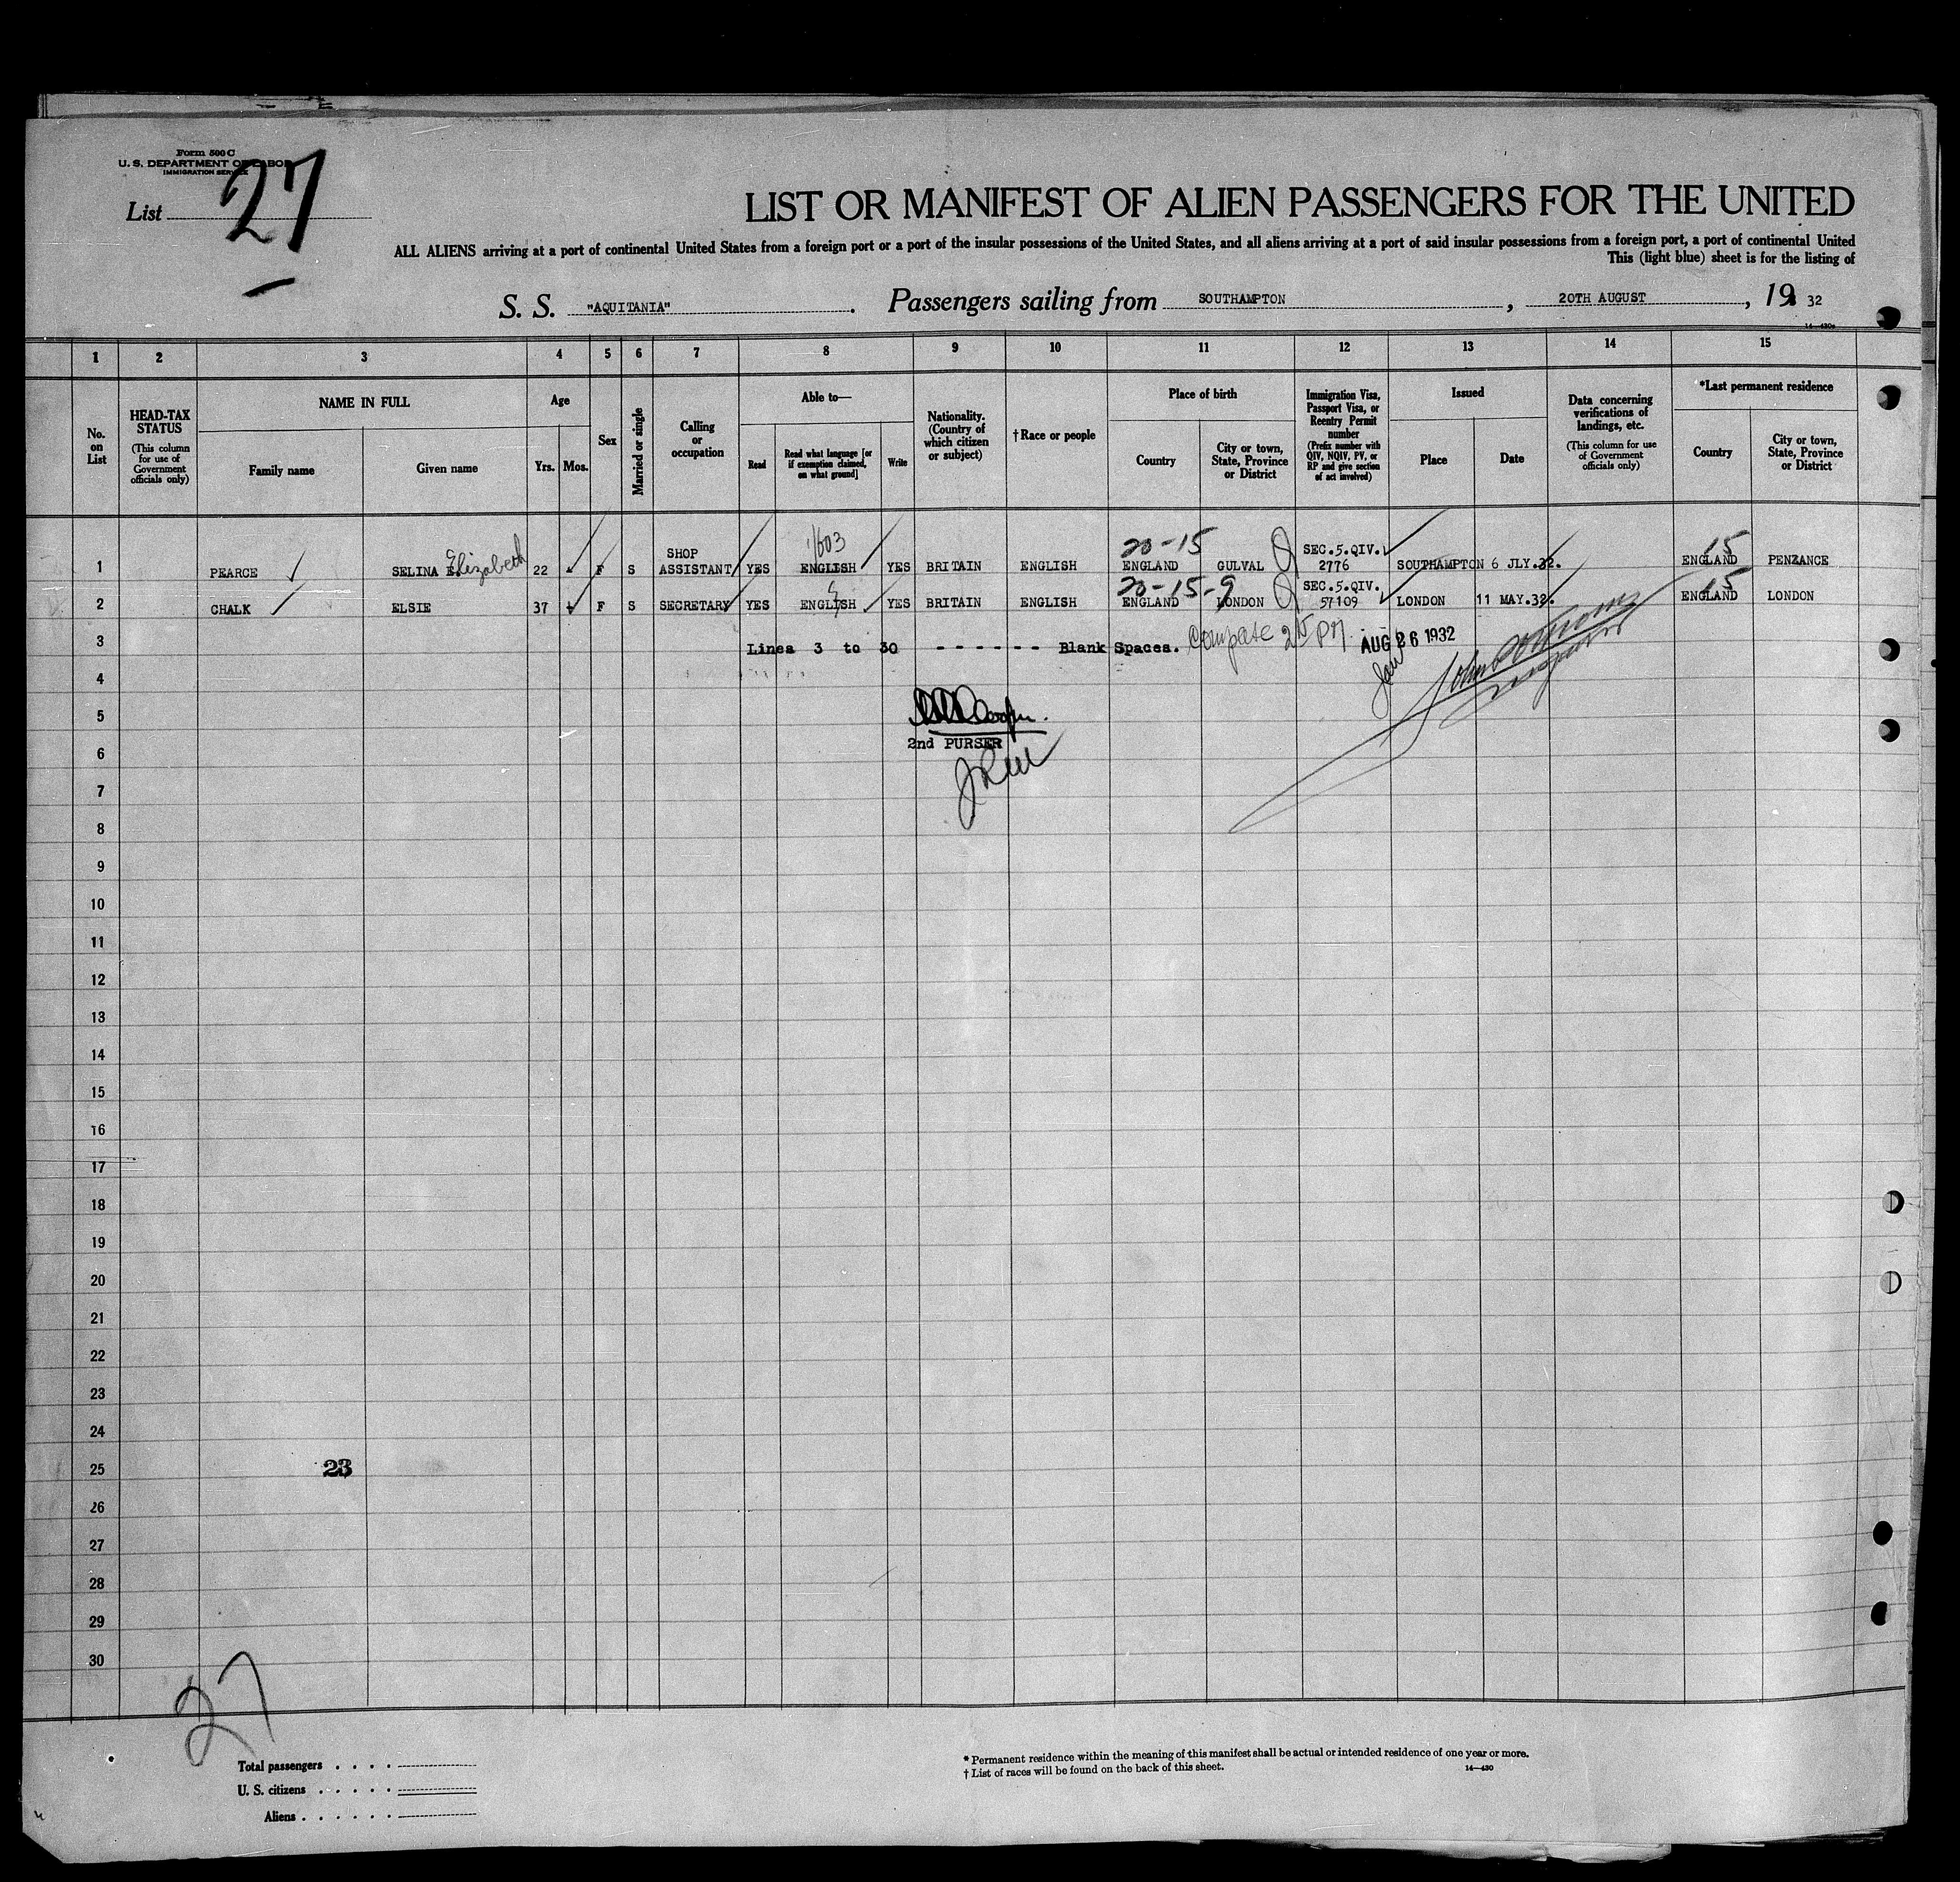 Form 500 C
U. S. DEPARTMENT OF LABOR
IMMIGRATION SERVICE
List 27
LIST OR MANIFEST OF ALIEN PASSENGERS FOR THE UNITED
ALL ALIENS arriving at a port of continental United States from a foreign port or a port of the insular possessions of the United States, and all aliens arriving at a port of said insular possessions from a foreign port, a port of continental United
This (light blue) sheet is for the listing of
S. S. "AQUITANIA". Passengers sailing from SOUTHAMPTON, 20TH AUGUST, 19 32
14—430a
1 2 3 4 5 6 7 8 9 10 11 12 13 14 15
No. on List
HEAD-TAX STATUS
(This column for use of Government officials only)
NAME IN FULL
Family name
Given name
Age
Yrs.
Mos.
Sex
Married or single
Calling or occupation
Able to—
Read
Read what language [or if exemption claimed, on what ground]
Write
Nationality. (Country of which citizen or subject)
†Race or people
Place of birth
Country
City or town, State, Province or District
Immigration Visa, Passport Visa, or Reentry Permit number
(Prefix number with QIV, NQIV, PV, or RP and give section of act involved)
Issued
Place
Date
Data concerning verifications of landings, etc.
(This column for use of Government officials only)
*Last permanent residence
Country
City or town, State, Province or District
1603
20-15
15
1 PEARCE SELINA E. Elizabeth 22 F S SHOP ASSISTANT YES ENGLISH YES BRITAIN ENGLISH ENGLAND GULVAL SEC.5.QIV. 2776 SOUTHAMPTON 6 JLY.32. ENGLAND PENZANCE
20-15-9
15
2 CHALK ELSIE 37 F S SECRETARY YES ENGLISH YES BRITAIN ENGLISH ENGLAND LONDON SEC.5.QIV. 57109 LONDON 11 MAY.32. ENGLAND LONDON
3 Lines 3 to 30 - - - - - - Blank Spaces. AUG 26 1932
4
5
2nd PURSER
6
7
8
9
10
11
12
13
14
15
16
17
18
19
20
21
22
23
24
25 23
26
27
28
29
30
27
Total passengers . . . .
U. S. citizens . . . . .
Aliens . . . . . .
* Permanent residence within the meaning of this manifest shall be actual or intended residence of one year or more.
† List of races will be found on the back of this sheet.
14—430